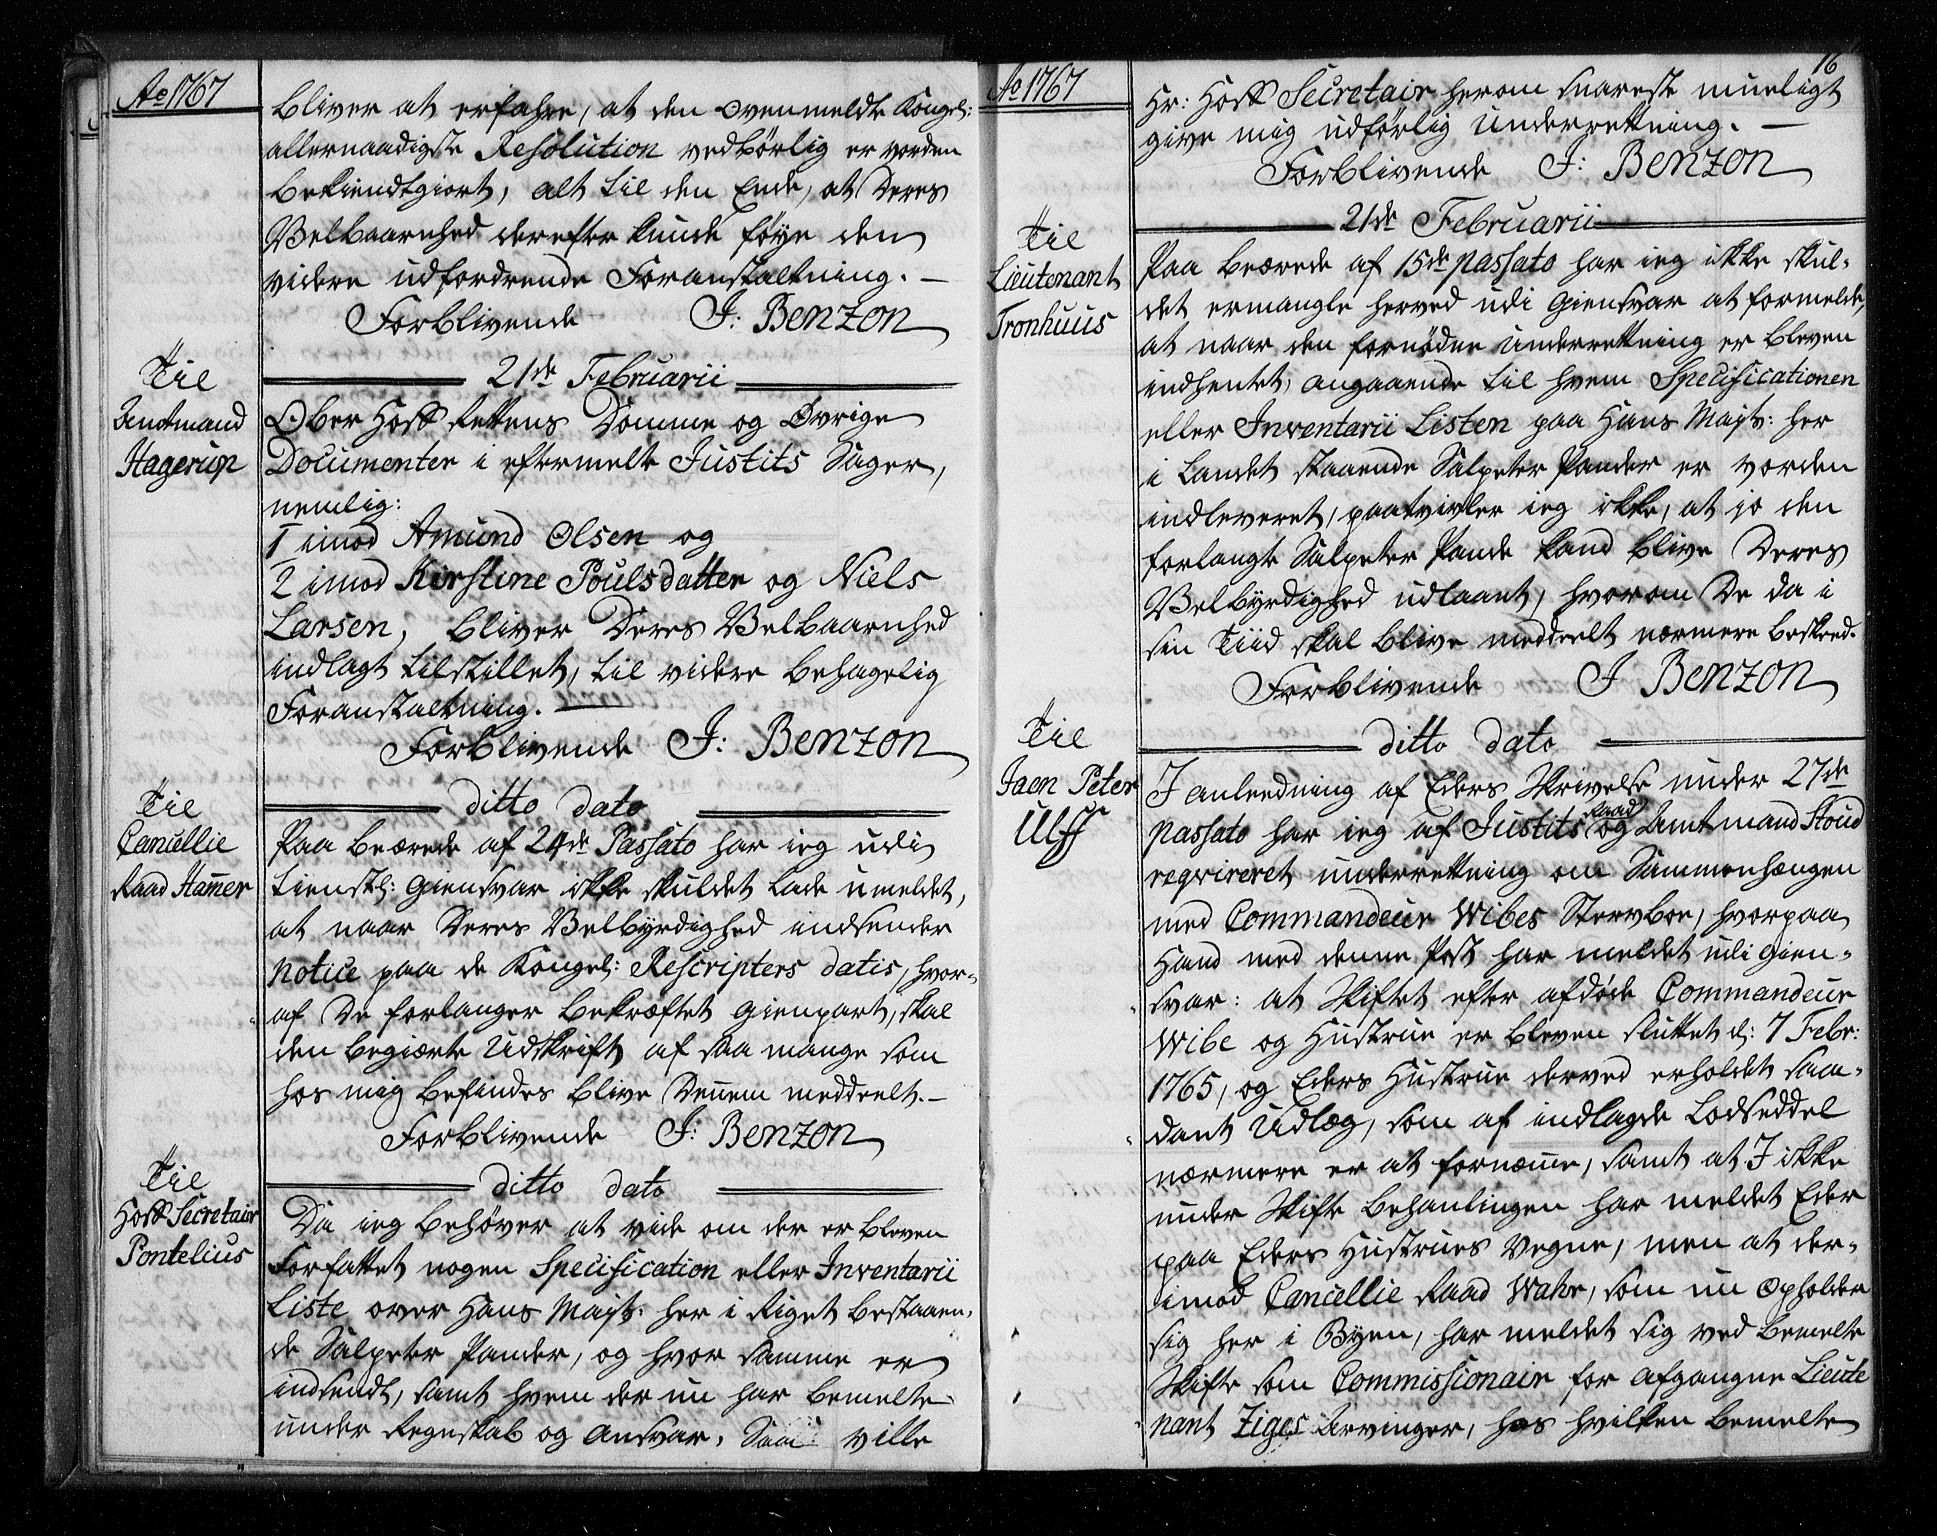 Ao 1767
bliver at erfahre, at den Ovenmeldte Kongel:
allernaadigste Resolution vedbørlig er vorden
bekiendtgiort, alt til den Ende, at Deres
Velbaarnhed derefter kunde føye den
videre udfordrende Foranstaltning. —
Forblivende J: Benzon
21de Februarii
Til
Amtmand
Hagerup
Ober Hoff Rettens Domme og Øvrige
Documenter i eftermelte Justits Sager,
nemlig:
1 imod Amund Olsen og
2 imod Kirstine Poulsdatter og Niels
Larsen, bliver Deres Velbaarnhed
indlagt tilstillet, til videre behagelig
Foranstaltning. —
Forblivende J: Benzon
ditto dato
Til
Cancellie
Raad Hamer
Paa beærede af 24de Passato har ieg udi
tienstl: giensvar ikke skuldet lade umeldet,
at naar Deres Velbyrdighed indsender
Notice paa de Kongel: Rescripters datis, hvor-
af De forlanger bekræftet gienpart, skal
den begiærte Udskrift af saa mange som
hos mig befindes blive Dennem meddeelt. —
Forblivende J: Benzon
ditto dato
Til
Hoff Secretair
Pontelius
Da ieg behøver at vide om der er bleven
Forfattet nogen Specification eller Inventarii
Liste over Hans Mayts: her i Riget bestaaen-
de Salpeter Pander, og hvor samme er
indsendt, samt hvem der nu har bemelte
under Regnskab og ansvar, Saa ville
16
Ao 1767
Hr: Hoff Secretair herom snarest mueligt
give mig udførlig Underretning. —
Forblivende J: Benzon
21de Februarii
Til
Lieutenant
Tronhuus
Paa beærede af 15de passato har ieg ikke skul-
det ermangle herved udi giensvar at formelde,
at naar den fornødne underretning er bleven
indhentet, angaaende til hvem Specificationen
eller Inventarii Listen paa Hans Mayts: her
i Landet staaende Salpeter Pander er vorden
indleveret, paatvivler ieg ikke, at jo den
forlangte Salpeter Pande kand blive Deres
Velbyrdighed udlaant, hvorom De da i
sin Tiid skal blive meddeelt nærmere beskeed.
Forblivende J Benzon
ditto dato
Til
Jaen Peter
Ulff
I anleedning af Eders Skrivelse under 27de
passato har ieg af Justits Raad og Amtmand Stoud
reqvireret underretning om Sammenhængen
med Commandeur Wibes Stervboe, hvorpaa
Hand med denne Post har meldet udi gien-
svar: at Skiftet efter afdøde Commandeur
Wibe og Hustrue er bleven sluttet d: 7 Febr:
1765, og Eders Hustrue derved erholdet saa-
dant Udlæg, som af indlagde Lodseddel
nærmere er at fornæmme, samt at I ikke
under Skifte behanlingen har meldet Eder
paa Eders Hustrues Vegne, men at der-
imod Cancellie Raad Wahr, som nu opholder
sig her i Byen, har meldet sig ved bemelte
Skifte som Commissionair for afgangne Lieute
nant Ziges Arvinger, hos hvilken bemelte